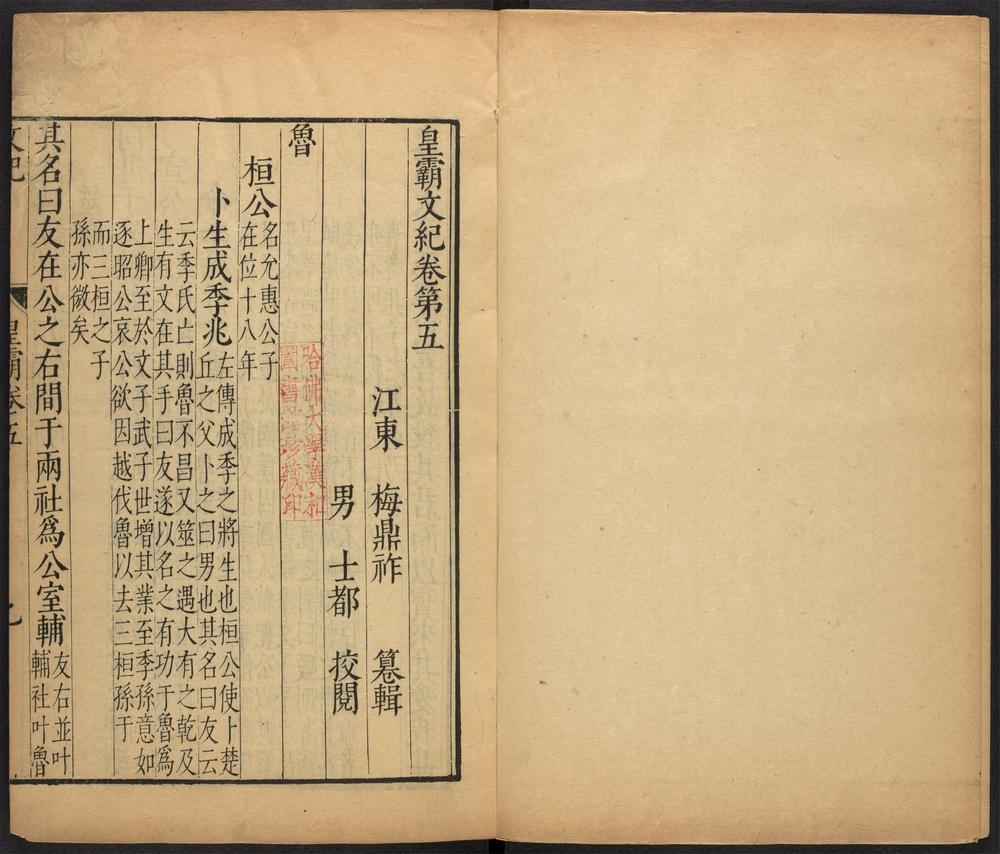 皇霸文紀卷第五
江東 梅鼎祚 篹輯
男 士都 挍閱
魯
哈佛大學漢和
圖書館珍藏印
桓公
名允惠公子
在位十八年
卜生成季兆
左傳成季之將生也桓公使卜楚
丘之父卜之曰男也其名曰友云
云季氏亡則魯不昌又筮之遇大有之乾及
生有文在其手曰友遂以名之有功于魯爲
上卿至於文子武子世增其業至季孫意如
逐昭公哀公欲因越伐魯以去三桓孫于
而三桓之子
孫亦微矣
其名曰友在公之右間于兩社爲公室輔
友右並叶
輔社叶魯
文紀 皇霸卷五